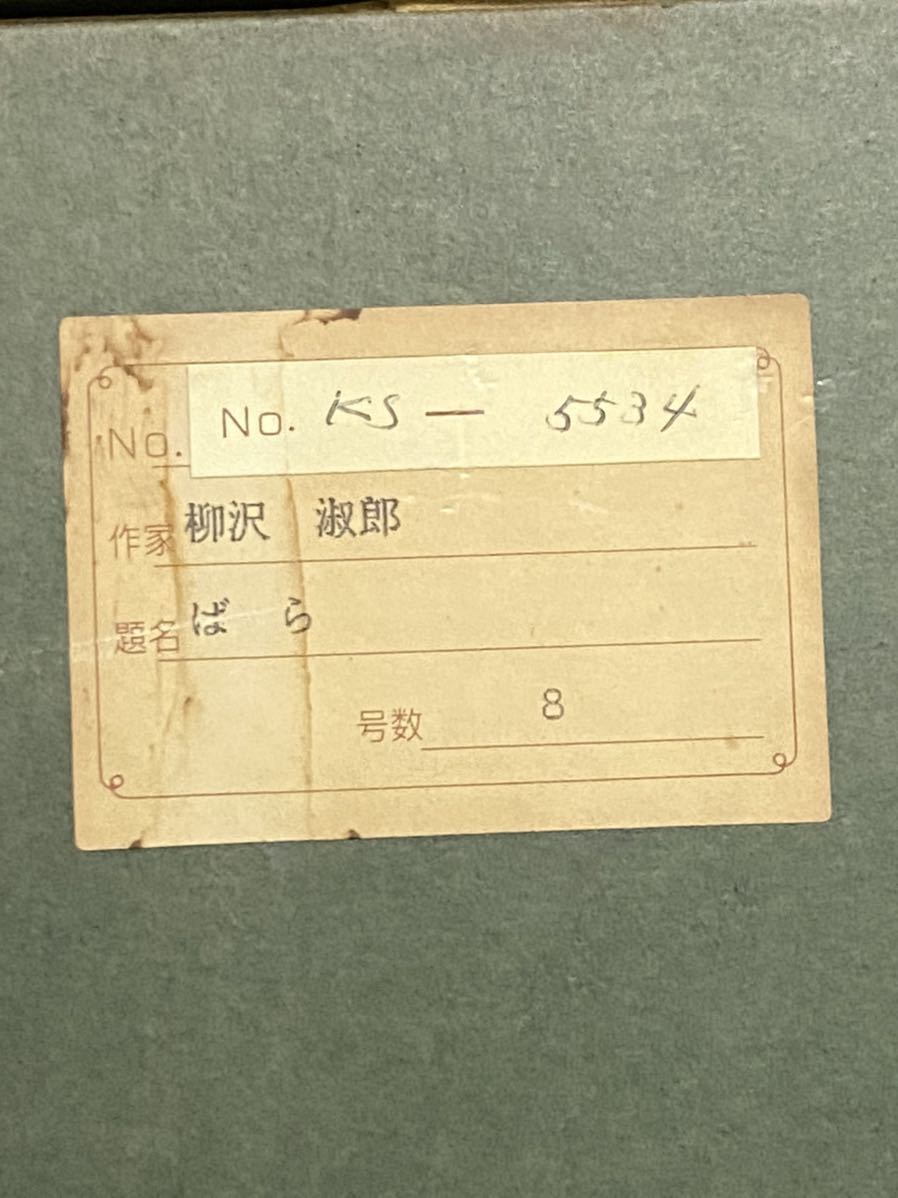 No. No. KS — 5534
作家 柳沢 淑郎
題名 ばら
号数 8